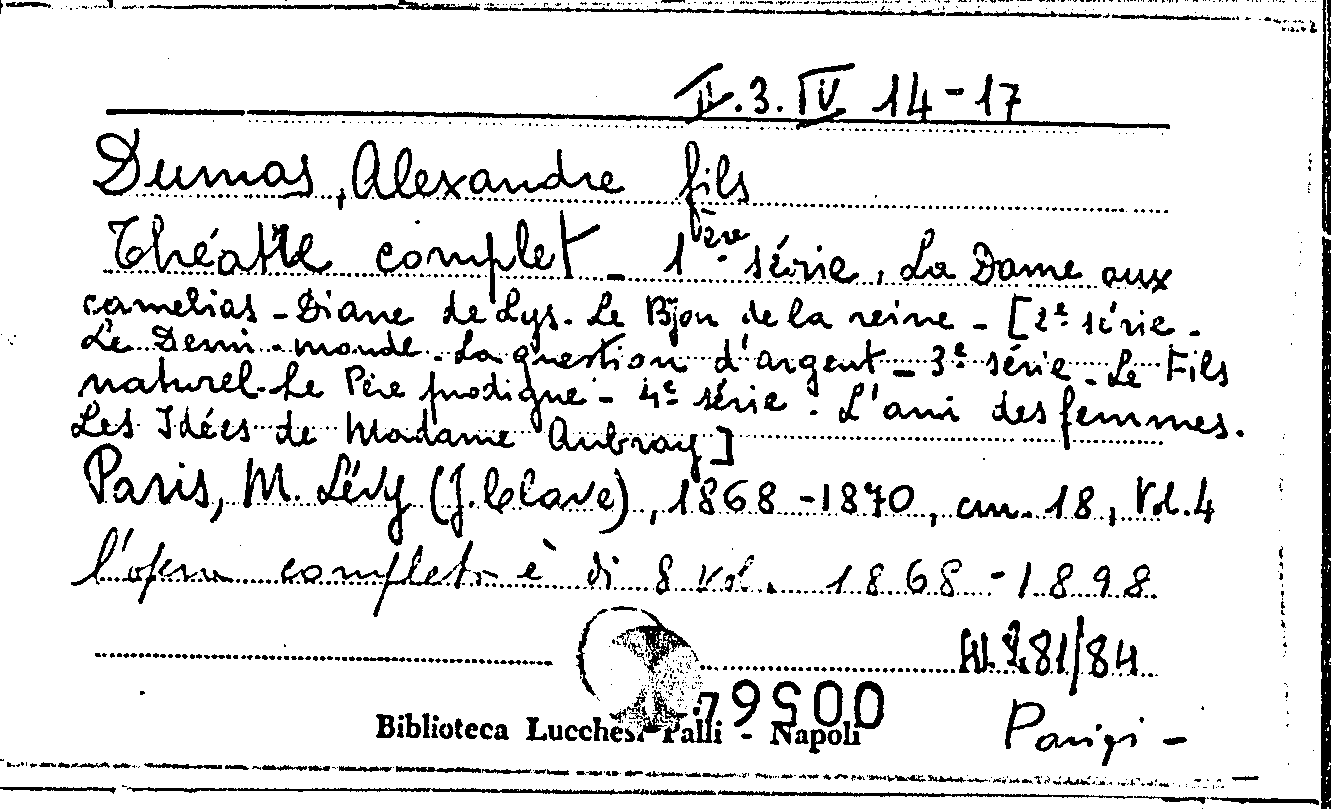 II.3.IV 14-17
Dumas, Alexandre fils
Théatre complet - 1ère série, La Dame aux
camelias - Diane de Lys. Le Bijou de la reine - [2e série -
Le Demi-monde. La question d'argent - 3e série - Le Fils
naturel. Le Père prodigue - 4e série. L'ami des femmes.
Les Idées de Madame Aubray]
Paris, M. Lévy (J. Clave), 1868-1870, cm. 18, Vol. 4
l'opera completa è di 8 vol. 1868-1898
281/84
Biblioteca Lucchesi Palli - Napoli
Parigi -